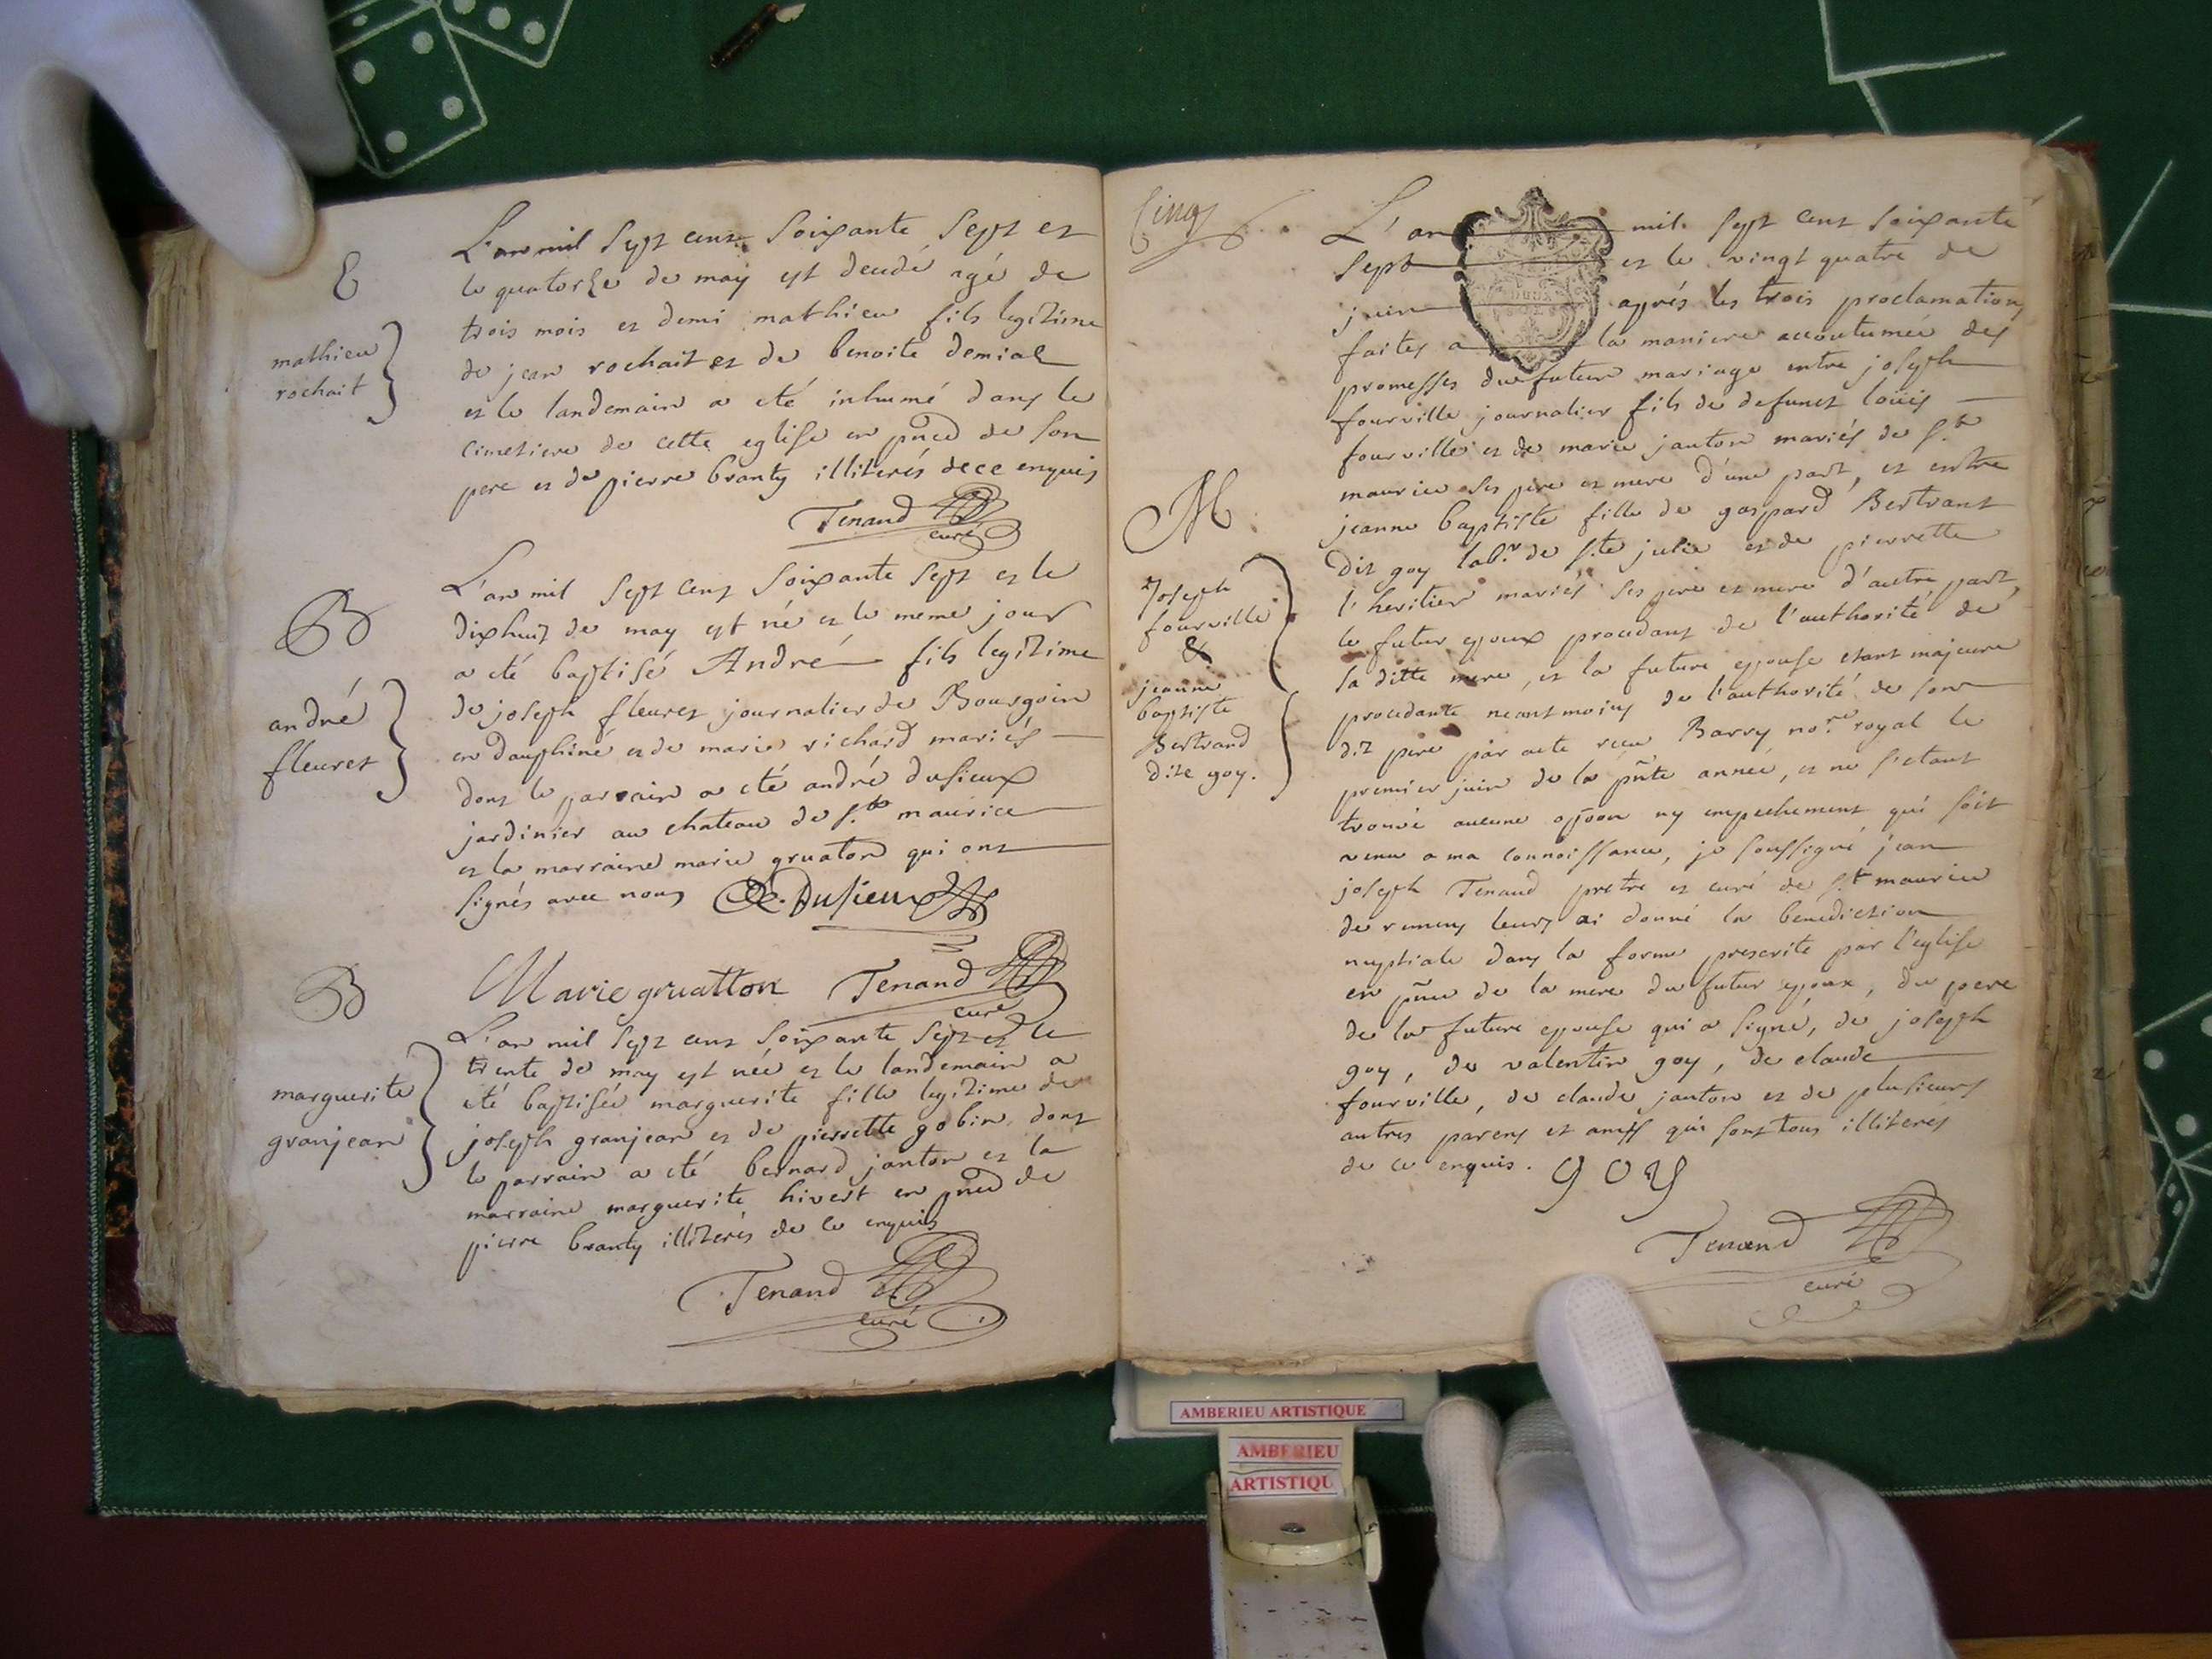 E
mathieu
rochait
L'an mil sept cent soixante sept et
le quatorze de may est decedé agé de
trois mois et demi mathieu fils legitime
de jean rochait et de benoite demial
et le landemain a eté inhumé dans le
cimetiere de cette eglise en pnce de son
pere et de pierre branty illiterés de ce enquis
Tenand
curé
B
andré
fleuret
L'an mil sept cent soixante sept et le
dixhuit de may est né et le meme jour
a eté baptisé André fils legitime
de joseph fleuret journalier de Bourgoin
en dauphiné et de marie richard mariés
dont le parrain a eté andré dusieux
jardinier au chateau de st maurice
et la marraine marie gruaton qui ont
signés avec nous Dusieux
Marie gruatton Tenand
curé
B
marguerite
granjean
L'an mil sept cent soixante sept et le
trente de may est née et le landemain a
eté baptisée marguerite fille legitime de
joseph granjean et de pierrette gobin, dont
le parrain a eté bernard janton et la
marraine marguerite hivert en pnce de
pierre branty illiterés de ce enquis
Tenand
curé
Cinq
M
Joseph
fourville
&
jeanne
baptiste
Bertrand
dite goy.
L'an mil sept cent soixante
sept et le vingt quatre de
juin aprés les trois proclamations
faites a la maniere accoutumée des
promesses du futur mariage entre joseph
fourville journalier fils de defunct loüis
fourville et de marie janton mariés de st
maurice ses pere et mere d'une part, et entre
jeanne baptiste fille de gaspard Bertrant
dit goy labr. de ste julie et de pierrette
l'heritier mariés ses pere et mere d'autre part,
le futur epoux procedant de l'authorité de
sa ditte mere, et la future epouse etant majeure
procedante neantmoins de l'authorité de son
dit pere par acte reçu Barry nore royal le
premier juin de la pnte année, et ne s'etant
trouvé aucune opoon ny empechement qui soit
venu a ma connoissance, je soussigné jean
joseph Tenand pretre et curé de st maurice
de remens leurs ai donné la benediction
nuptiale dans la forme prescrite par l'eglise
en pnce de la mere du futur epoux, du pere
de la future epouse qui a signé, de joseph
goy, de valentin goy, de claude
fourville, de claude janton et de plusieurs
autres parens et amis qui sont tous illiterés
de ce enquis. goy
Tenand
curé
AMBERIEU ARTISTIQUE
AMBERIEU
ARTISTIQU